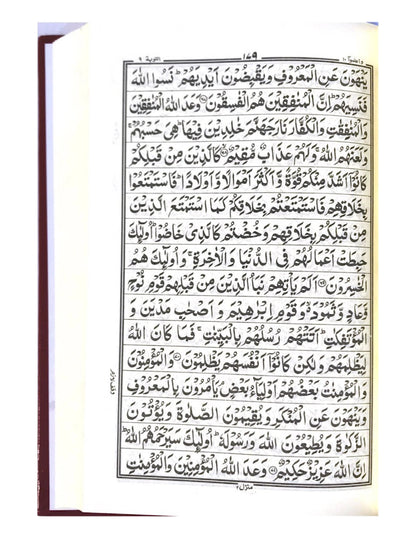 واعلموٓا ١٠ ١٧٩ التوبة ٩
يَنْهَوْنَ عَنِ الْمَعْرُوْفِ وَيَقْبِضُوْنَ اَيْدِيَهُمْ ؕ نَسُوا اللّٰهَ
فَنَسِيَهُمْ ؕ اِنَّ الْمُنٰفِقِيْنَ هُمُ الْفٰسِقُوْنَ ﴿۶۷﴾ وَعَدَ اللّٰهُ الْمُنٰفِقِيْنَ
وَالْمُنٰفِقٰتِ وَالْكُفَّارَ نَارَ جَهَنَّمَ خٰلِدِيْنَ فِيْهَا ؕ هِيَ حَسْبُهُمْ ۚ
وَلَعَنَهُمُ اللّٰهُ ۚ وَلَهُمْ عَذَابٌ مُّقِيْمٌ ﴿۶۸﴾ كَالَّذِيْنَ مِنْ قَبْلِكُمْ
كَانُوْٓا اَشَدَّ مِنْكُمْ قُوَّةً وَّ اَكْثَرَ اَمْوَالًا وَّ اَوْلَادًا ؕ فَاسْتَمْتَعُوْا
بِخَلَاقِهِمْ فَاسْتَمْتَعْتُمْ بِخَلَاقِكُمْ كَمَا اسْتَمْتَعَ الَّذِيْنَ
مِنْ قَبْلِكُمْ بِخَلَاقِهِمْ وَخُضْتُمْ كَالَّذِيْ خَاضُوْا ؕ اُولٰٓئِكَ
حَبِطَتْ اَعْمَالُهُمْ فِي الدُّنْيَا وَ الْاٰخِرَةِ ۚ وَ اُولٰٓئِكَ هُمُ
الْخٰسِرُوْنَ ﴿۶۹﴾ اَلَمْ يَاْتِهِمْ نَبَاُ الَّذِيْنَ مِنْ قَبْلِهِمْ قَوْمِ نُوْحٍ
وَّعَادٍ وَّ ثَمُوْدَ ۙ۬ وَ قَوْمِ اِبْرٰهِيْمَ وَ اَصْحٰبِ مَدْيَنَ وَ
الْمُؤْتَفِكٰتِ ؕ اَتَتْهُمْ رُسُلُهُمْ بِالْبَيِّنٰتِ ۚ فَمَا كَانَ اللّٰهُ
لِيَظْلِمَهُمْ وَلٰكِنْ كَانُوْٓا اَنْفُسَهُمْ يَظْلِمُوْنَ ﴿۷۰﴾ وَالْمُؤْمِنُوْنَ
وَالْمُؤْمِنٰتُ بَعْضُهُمْ اَوْلِيَآءُ بَعْضٍ ۘ يَاْمُرُوْنَ بِالْمَعْرُوْفِ
وَيَنْهَوْنَ عَنِ الْمُنْكَرِ وَيُقِيْمُوْنَ الصَّلٰوةَ وَيُؤْتُوْنَ
الزَّكٰوةَ وَيُطِيْعُوْنَ اللّٰهَ وَرَسُوْلَهٗ ؕ اُولٰٓئِكَ سَيَرْحَمُهُمُ اللّٰهُ ؕ
اِنَّ اللّٰهَ عَزِيْزٌ حَكِيْمٌ ﴿۷۱﴾ وَعَدَ اللّٰهُ الْمُؤْمِنِيْنَ وَالْمُؤْمِنٰتِ
منزل ٢